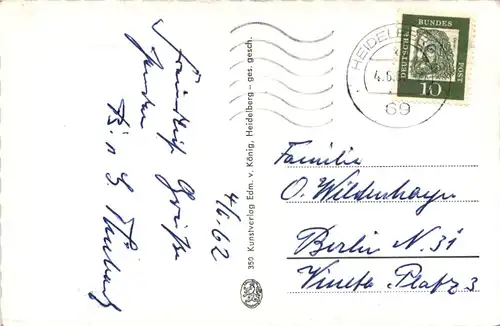 Freundliche Grüße
senden
4/6.62
350 Kunstverlag Edm. v. König, Heidelberg - ges. gesch.
HEIDELB
4.6.
69
DEUTSCHE BUNDES
10
Familie
O. Wildenhayn
Berlin N. 31
Vineta Platz 3